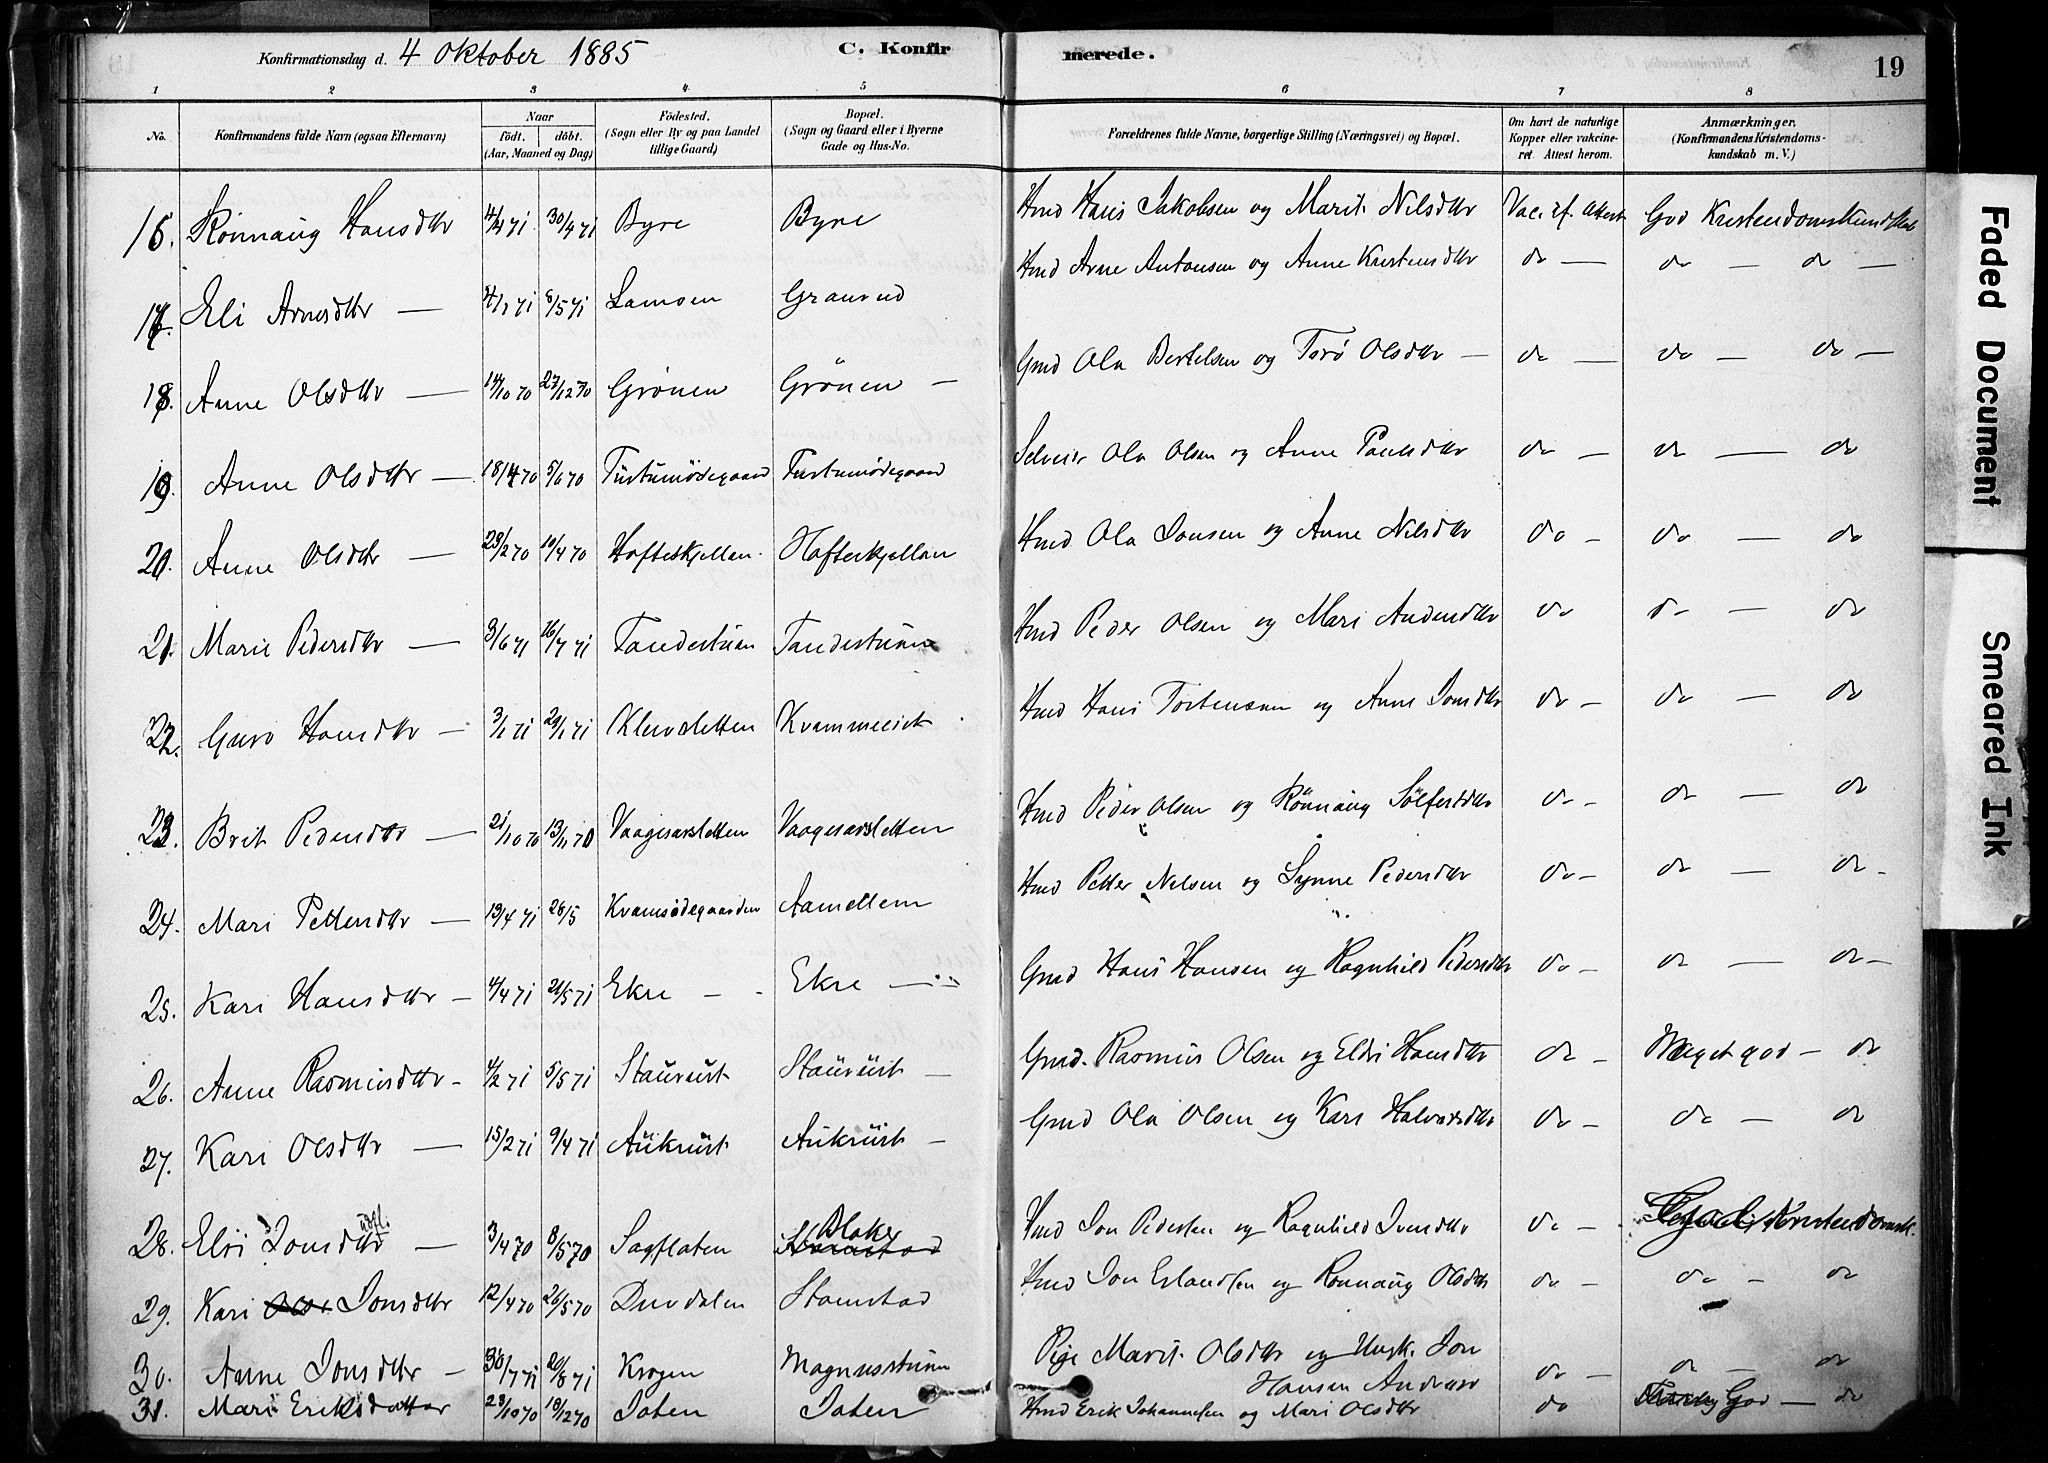 Konfirmationsdag d. 4 Oktober 1885 C. Konfir merede. 19
1 2 3 4 5 6 7 8
No. Konfirmandens fulde Navn (ogsaa Efternavn) Naar Födested. Bopæl. Forældrenes fulde Navne, borgerlige Stilling (Næringsvei) og Bopæl. Om havt de naturlige Anmærkninger.
födt. döbt. (Sogn eller By og paa Landet (Sogn og Gaard eller i Byerne Kopper eller vakcine- (Konfirmandens Kristendoms-
(Aar, Maaned og Dag) lillige Gaard) Gade og Hus-No. ret Attest herom. kundskab m. V.)
16. Rönnaug Hansdtr 4/4 71 30/4 71 Byre Byre Hmd Hans Jakobsen og Marit Nilsdtr Vac. if. Attest God Kristendomskundskab
17. Eli Arnesdtr — 4/1 71 8/5 71 Lamoen Graurud Hmd Arne Antonsen og Anne Kristensdtr do — do — do —
18. Anne Olsdtr — 14/10 70 27/12 70 Grönen Grönen — Gmd Ola Bertelsen og Torö Olsdtr — do — do — do —
19. Anne Olsdtr — 18/4 70 5/6 70 Turtumödegaard Turtumödegaard Selveier Ola Olsen og Anne Paulsdtr do — do — do
20. Anne Olsdtr — 23/2 70 10/4 70 Hofteskjellan Hofteskjellan Hmd Ola Jonsen og Anne Nilsdtr do - do — do
21. Marie Pedersdtr — 3/6 71 16/7 71 Tandestuen Tandestuen Hmd Peder Olsen og Mari Andersdtr do do — do
22. Guro Hansdtr — 3/1 71 29/1 71 Klevsletten Kvammeeiet Hmd Hans Tostensen og Anne Jonsdtr do - do — do
23. Brit Pedersdtr — 21/10 70 13/11 70 Vaagesarsletten Vaagesarsletten Hmd Peder Olsen og Rönnaug Sölfestdtr do - do — do
24. Mari Pettersdtr — 13/4 71 28/5 Kvamsödegaarden Aamellem Hmd Petter Nelsen og Synne Pedersdtr do - do — do -
25. Kari Hansdtr — 4/4 71 21/5 71 Ekre - - Ekre — Gmd Hans Hansen og Ragnhild Pedersdtr do - do — do —
26. Anne Rasmusdtr - 4/2 71 5/5 71 Staurust Staurust — Gmd. Rasmus Olsen og Eldri Hansdtr do - Meget god — do
27. Kari Olsdtr — 15/2 71 9/4 71 Aukrust Aukrust — Gmd Ola Olsen og Kari Halvordsdtr do - do — do
28. Elri Jonsdtr udfl. — 3/4 70 8/5 70 Sagflaten Bloker Hmd Jon Pedersen og Ragnhild Ivarsdtr do - God Kristendomsk.
29. Kari Jonsdtr 12/4 70 26/5 70 Duvdalen Stamstad Hmd Jon Erlandsen og Rönnaug Olsdtr do - do - do
30. Anne Jonsdtr — 30/7 71 20/8 71 Krogen Magnusstuen Pige Marit Olsdtr og Ungk. Jon Hansen do - do — do
31. Mari Eriksdatter 23/10 70 18/12 70 Joten Joten Hmd Erik Johannesen og Mari Olsdtr do God — do
Faded Document
Smeared Ink